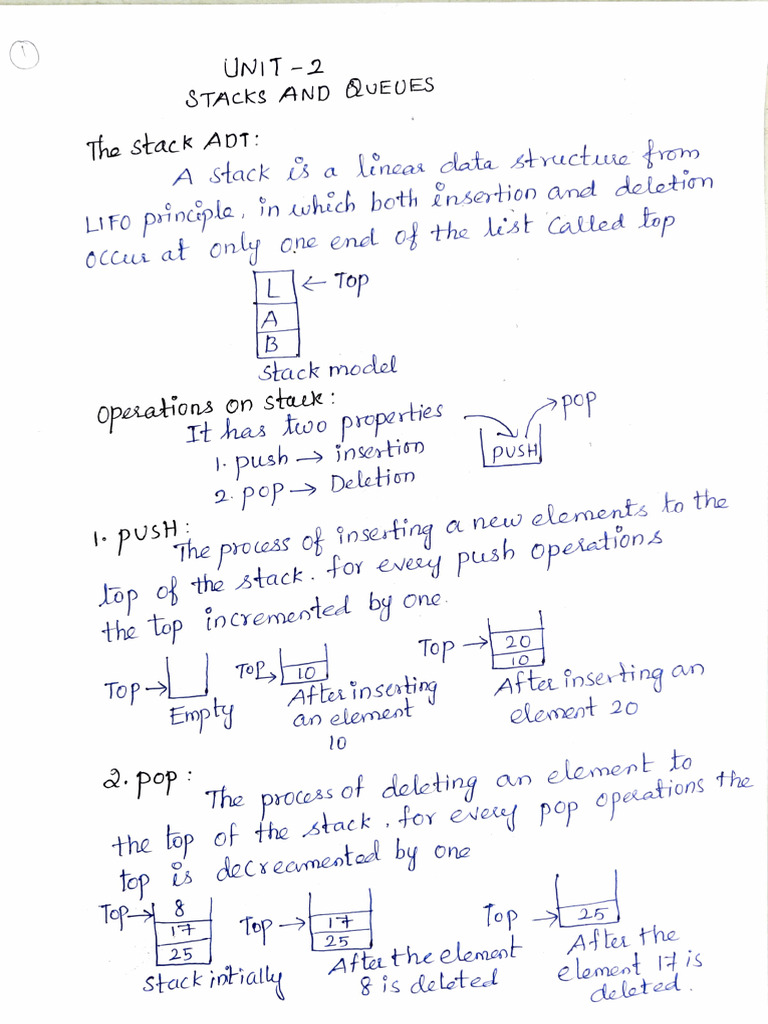 1
UNIT - 2
STACKS AND QUEUES
The Stack ADT:
A stack is a linear data structure from
LIFO principle, in which both insertion and deletion
occur at only one end of the list called top
L ← Top
A
B
Stack model
Operations on stack:
It has two properties
1. push → insertion
2. pop → Deletion
pop
PUSH
1. PUSH:
The process of inserting a new elements to the
top of the stack. for every push operations
the top incremented by one.
Top →
Empty
Top → 10
After inserting
an element
10
Top → 20
10
After inserting an
element 20
2. pop:
The process of deleting an element to
the top of the stack. for every pop operations the
top is decreamented by one
Top → 8
17
25
Stack initially
Top → 17
25
After the element
8 is deleted
Top → 25
After the
element 17 is
deleted.